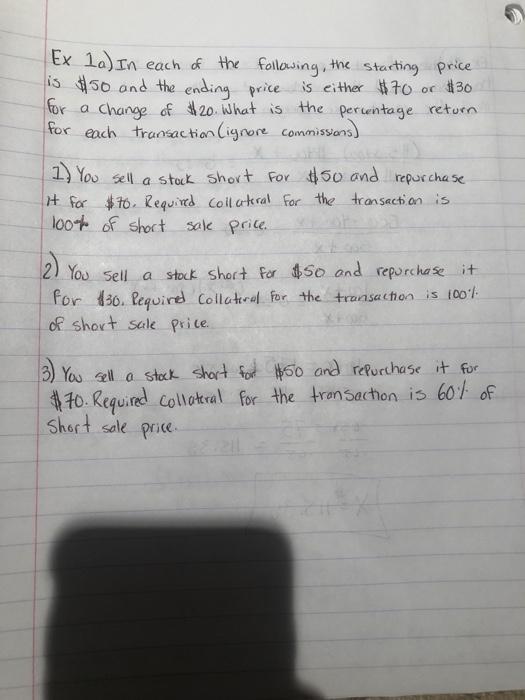 Ex 1a) In each of the following, the starting price
is $50 and the ending price is either $70 or $30
for a change of $20. What is the percentage return
for each transaction (ignore commissions)
1) You sell a stock short for $50 and repurchase
it for $70. Required collateral for the transaction is
100% of short sale price.
2) You sell a stock short for $50 and repurchase it
for $30. Required Collateral for the transaction is 100%
of short sale price.
3) You sell a stock short for $50 and repurchase it for
$70. Required collateral for the transaction is 60% of
Short sale price.